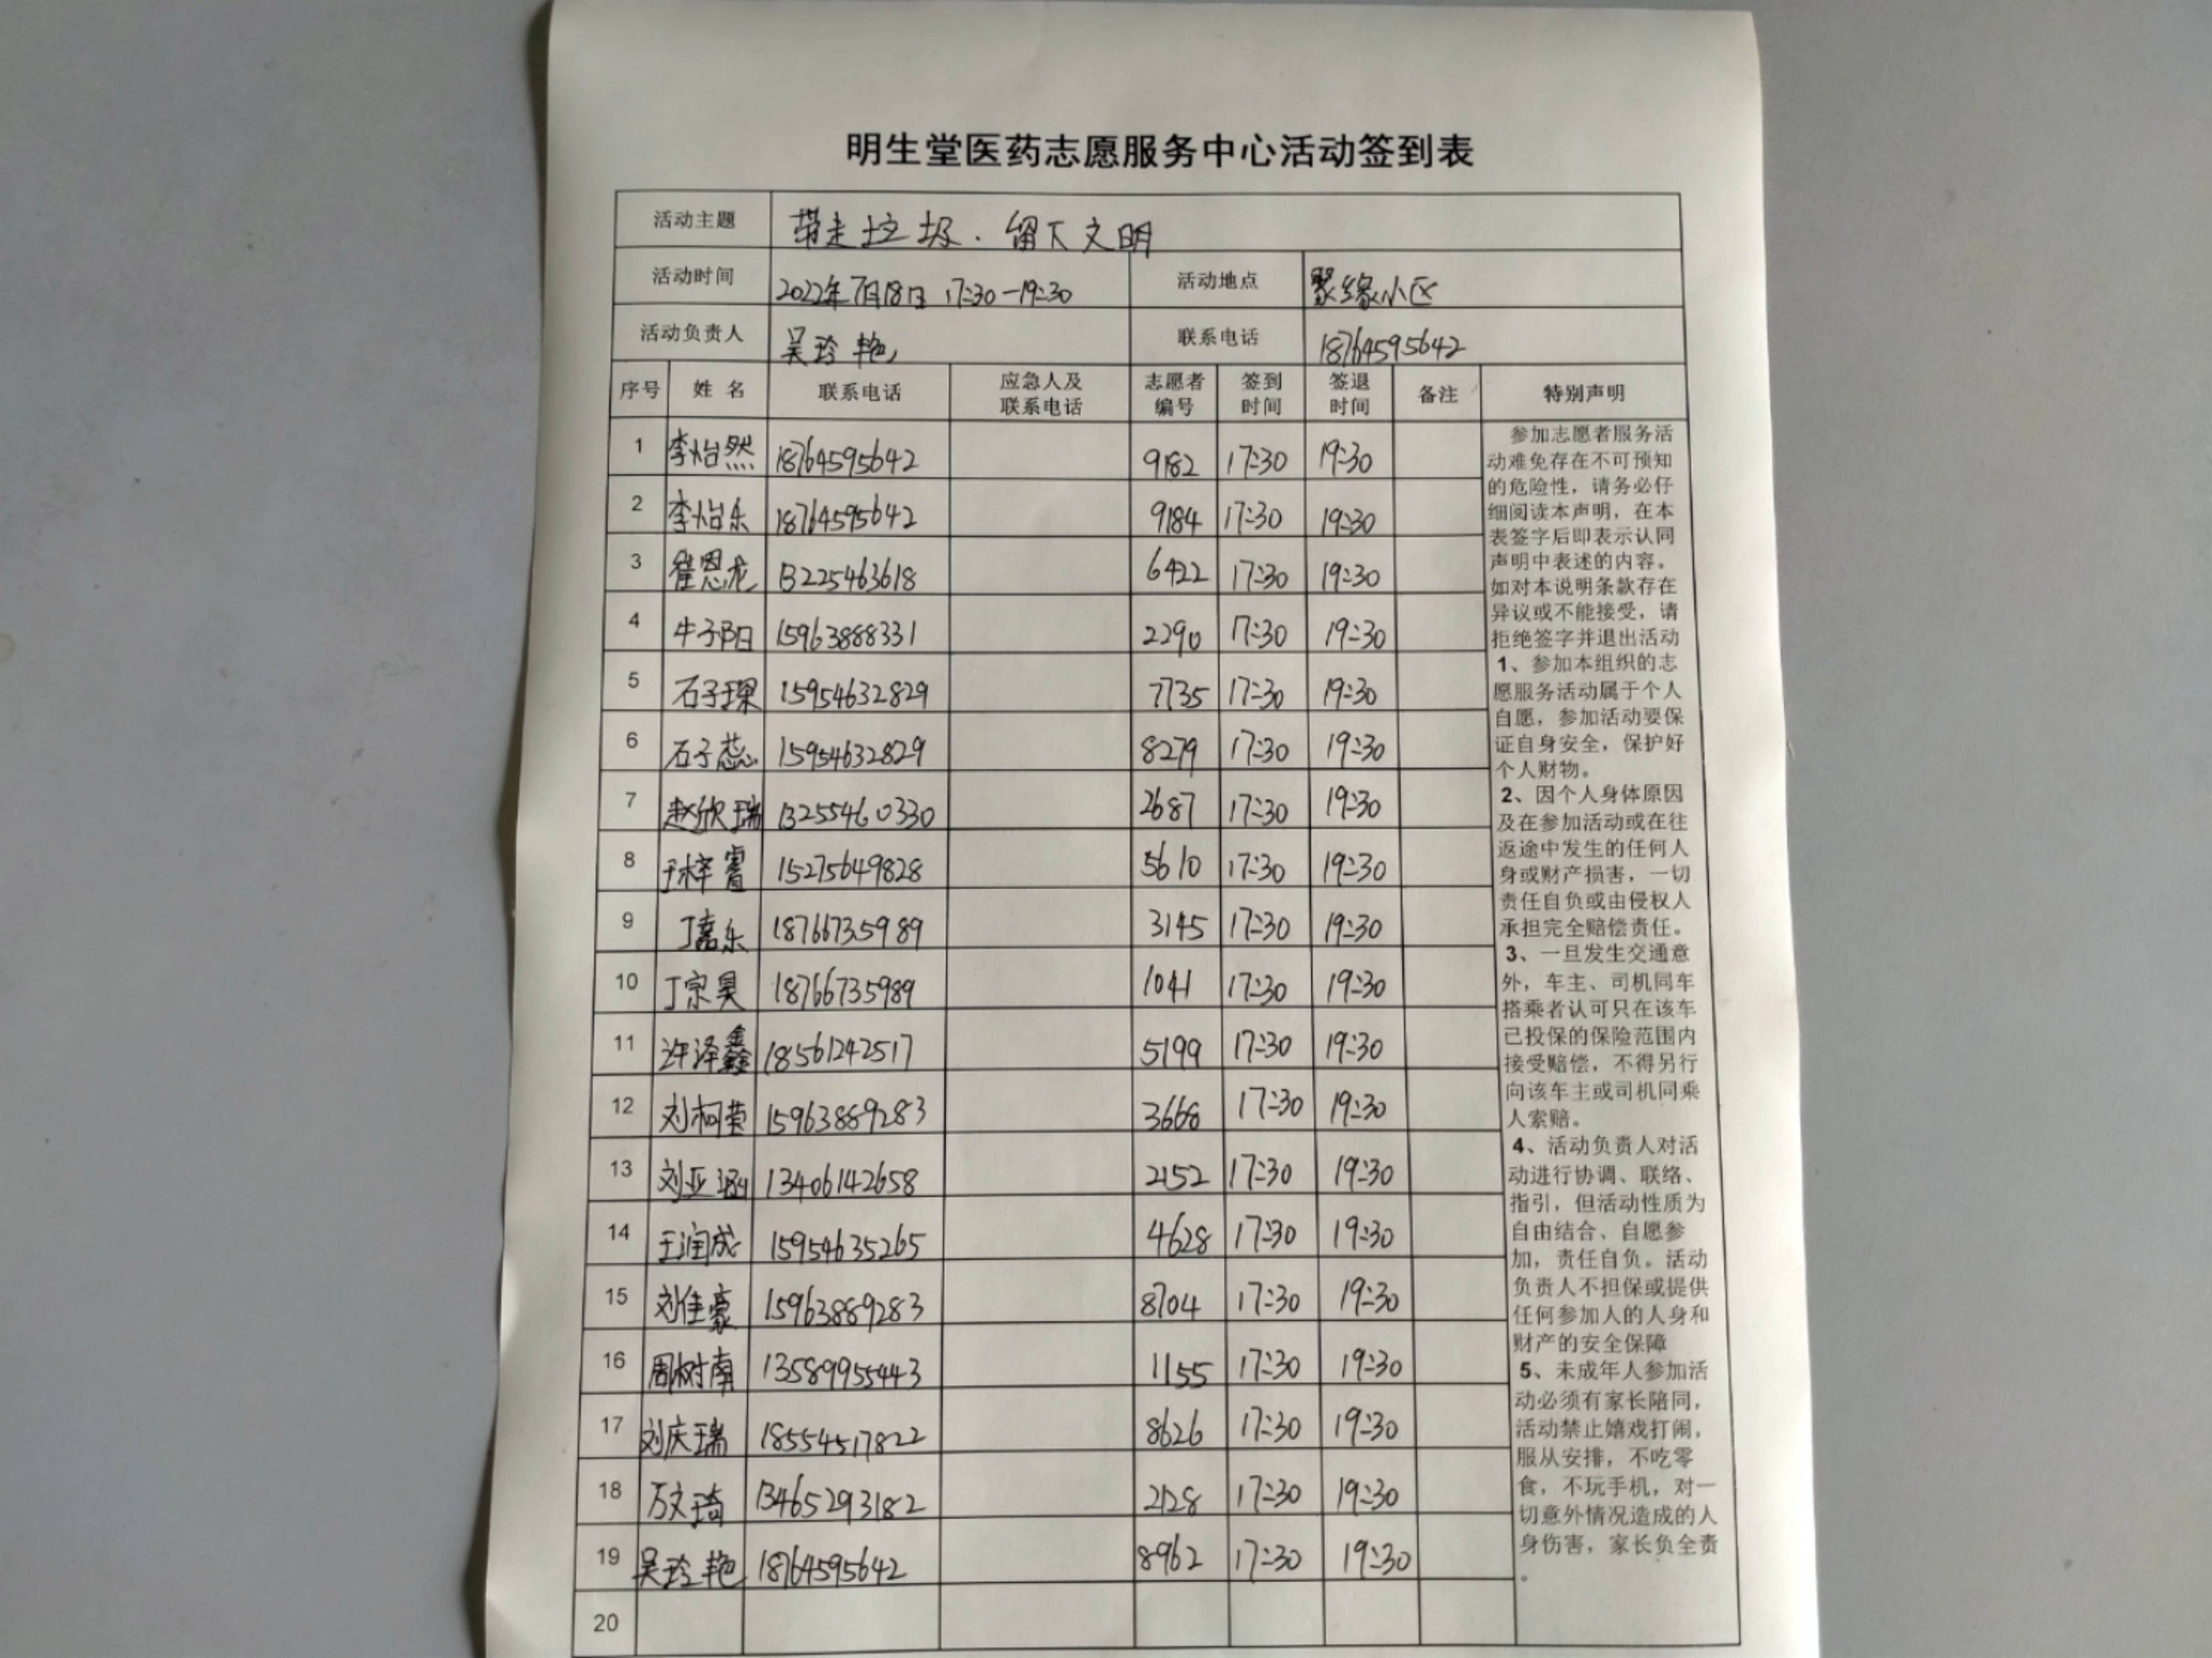 明生堂医药志愿服务中心活动签到表
活动主题 带走垃圾.留下文明
活动时间 2022年7月18日 17:30-19:30 活动地点 聚缘小区
活动负责人 吴玲艳 联系电话 18764595642
序号 姓名 联系电话 应急人及联系电话 志愿者编号 签到时间 签退时间 备注 特别声明
1 李怡然 18764595642 9182 17:30 19:30
2 李怡乐 18764595642 9184 17:30 19:30
3 崔恩龙 13225463618 6422 17:30 19:30
4 牛子阳 15963888331 2290 17:30 19:30
5 石子璟 15954632829 7735 17:30 19:30
6 石子蕊 15954632829 8279 17:30 19:30
7 赵欣瑞 13255460330 2687 17:30 19:30
8 王梓睿 15275649828 5610 17:30 19:30
9 丁嘉乐 18766735989 3145 17:30 19:30
10 丁宗昊 18766735989 1041 17:30 19:30
11 许泽鑫 18561242517 5199 17:30 19:30
12 刘柯莹 15963889283 3668 17:30 19:30
13 刘亚 13406142658 2152 17:30 19:30
14 王润成 15954635265 4628 17:30 19:30
15 刘佳豪 15963889283 8704 17:30 19:30
16 周树南 13589955443 1155 17:30 19:30
17 刘庆瑞 18554517822 8626 17:30 19:30
18 万文琦 13465293182 2128 17:30 19:30
19 吴玲艳 18764595642 8962 17:30 19:30
20
参加志愿者服务活
动难免存在不可预知
的危险性，请务必仔
细阅读本声明，在本
表签字后即表示认同
声明中表述的内容。
如对本说明条款存在
异议或不能接受，请
拒绝签字并退出活动
1、参加本组织的志
愿服务活动属于个人
自愿，参加活动要保
证自身安全，保护好
个人财物。
2、因个人身体原因
及在参加活动或在往
返途中发生的任何人
身或财产损害，一切
责任自负或由侵权人
承担完全赔偿责任。
3、一旦发生交通意
外，车主、司机同车
搭乘者认可只在该车
已投保的保险范围内
接受赔偿，不得另行
向该车主或司机同乘
人索赔。
4、活动负责人对活
动进行协调、联络、
指引，但活动性质为
自由结合、自愿参
加，责任自负。活动
负责人不担保或提供
任何参加人的人身和
财产的安全保障
5、未成年人参加活
动必须有家长陪同，
活动禁止嬉戏打闹，
服从安排，不吃零
食，不玩手机，对一
切意外情况造成的人
身伤害，家长负全责
。